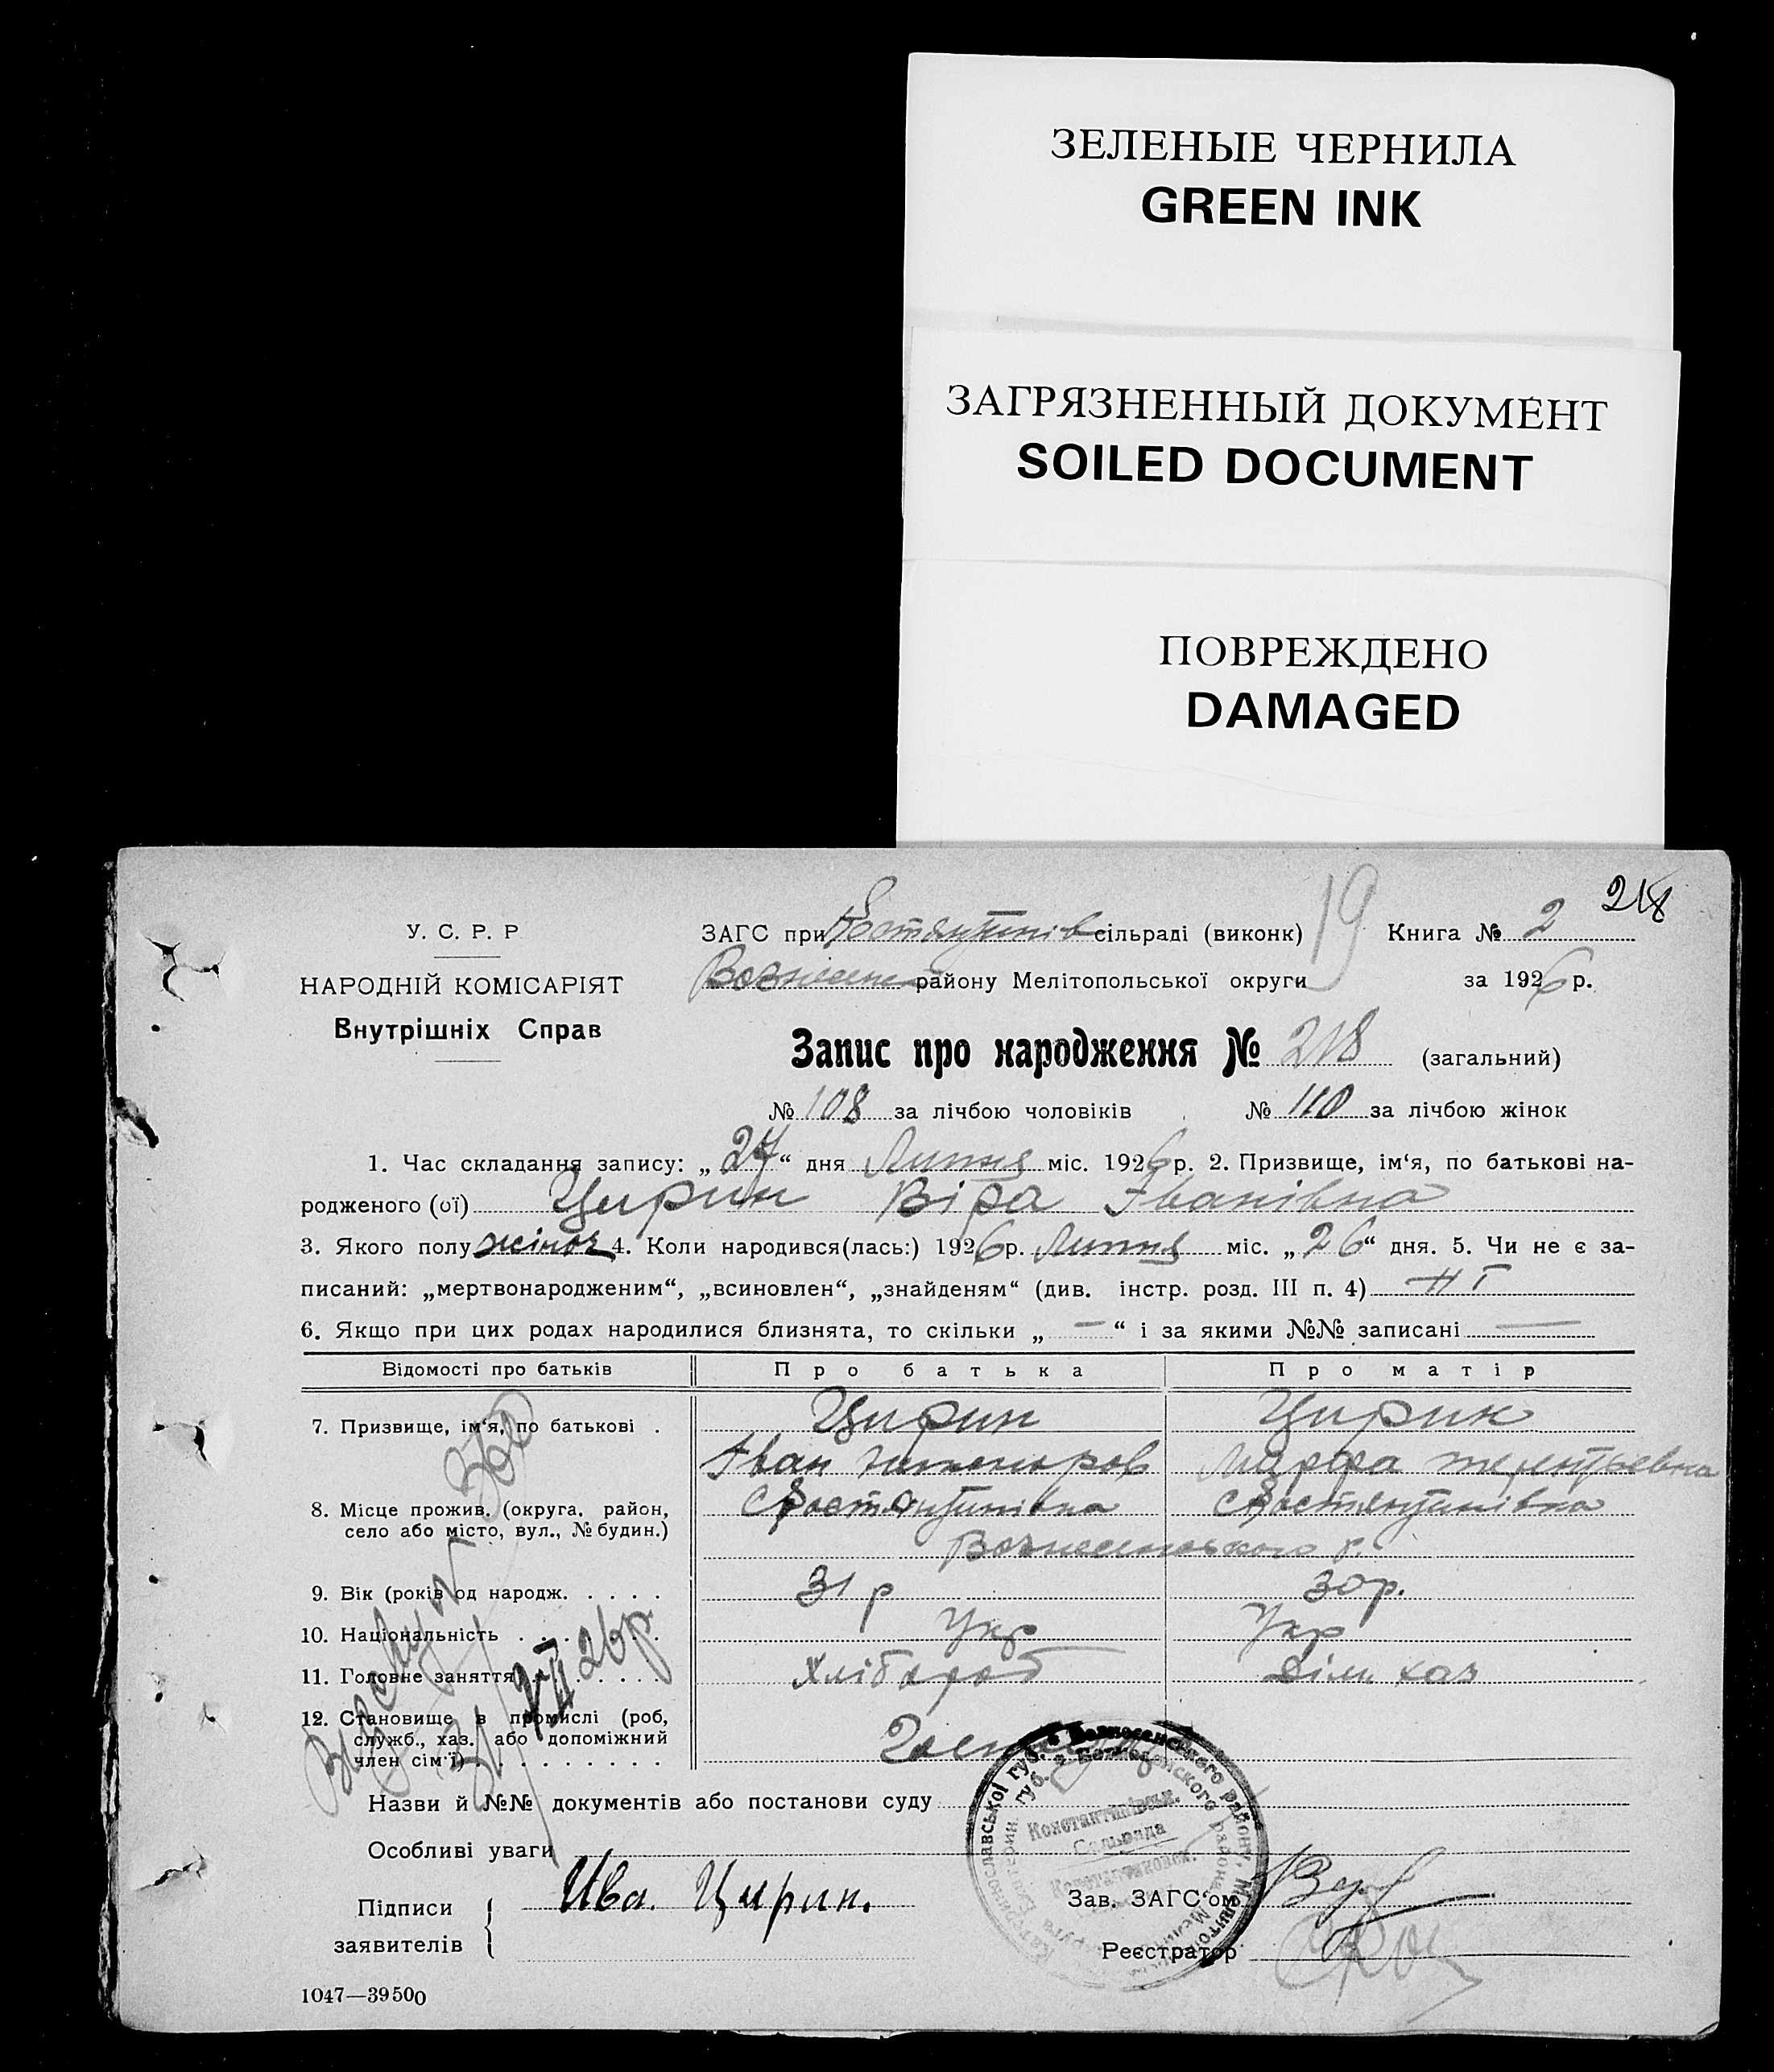 ЗЕЛЕНЫЕ ЧЕРНИЛА
GREEN INK
ЗАГРЯЗНЕННЫЙ ДОКУМЕНТ
SOILED DOCUMENT
ПОВРЕЖДЕНО
DAMAGED
218
У. С. Р. Р
НАРОДНІЙ КОМІСАРІЯТ
Внутрішніх Справ
ЗАГС при Костянтинів сільраді (виконк) 19 Книга № 2
Вознесен району Мелітопольської округи за 1926 р.
Запис про народження № 218 (загальний)
№ 108 за лічбою чоловіків № 110 за лічбою жінок
1. Час складання запису: „27“ дня Липня міс. 1926 р. 2. Призвище, ім‘я, по батькові на-
родженого (ої) Цирин Віра Іванівна
3. Якого полу жіноч 4. Коли народився(лась:) 1926 р. Липня міс. „26“ дня. 5. Чи не є за-
писаний: „мертвонародженим“, „всиновлен“, „знайденям“ (див. інстр. розд. III п. 4) ні
6. Якщо при цих родах народилися близнята, то скільки „—“ і за якими №№ записані —
Відомості про батьків Про батька Про матір
7. Призвище, ім‘я, по батькові . Цирин Цирин
Іван Марфа
8. Місце прожив. (округа, район, с Костянтинівка с Костянтинівка
село або місто, вул., № будин.) Вознесенського р.
9. Вік (років од народж. . . . . 31 р 30 р.
10. Національність . . . . . . Укр Укр
11. Головне заняття . . . . . Хлібороб Дім хаз
12. Становище в промислі (роб,
служб., хаз. або допоміжний
член сім‘ї) . . . . . . . . . .
31/VII 26 р
Назви й №№ документів або постанови суду
Особливі уваги
Підписи
заявителів
Ива. Цирин.
Зав. ЗАГС‘ом
Реєстратор
Вознесенського району, Меліто
Константинівськ.
Сільрада
1047—39500